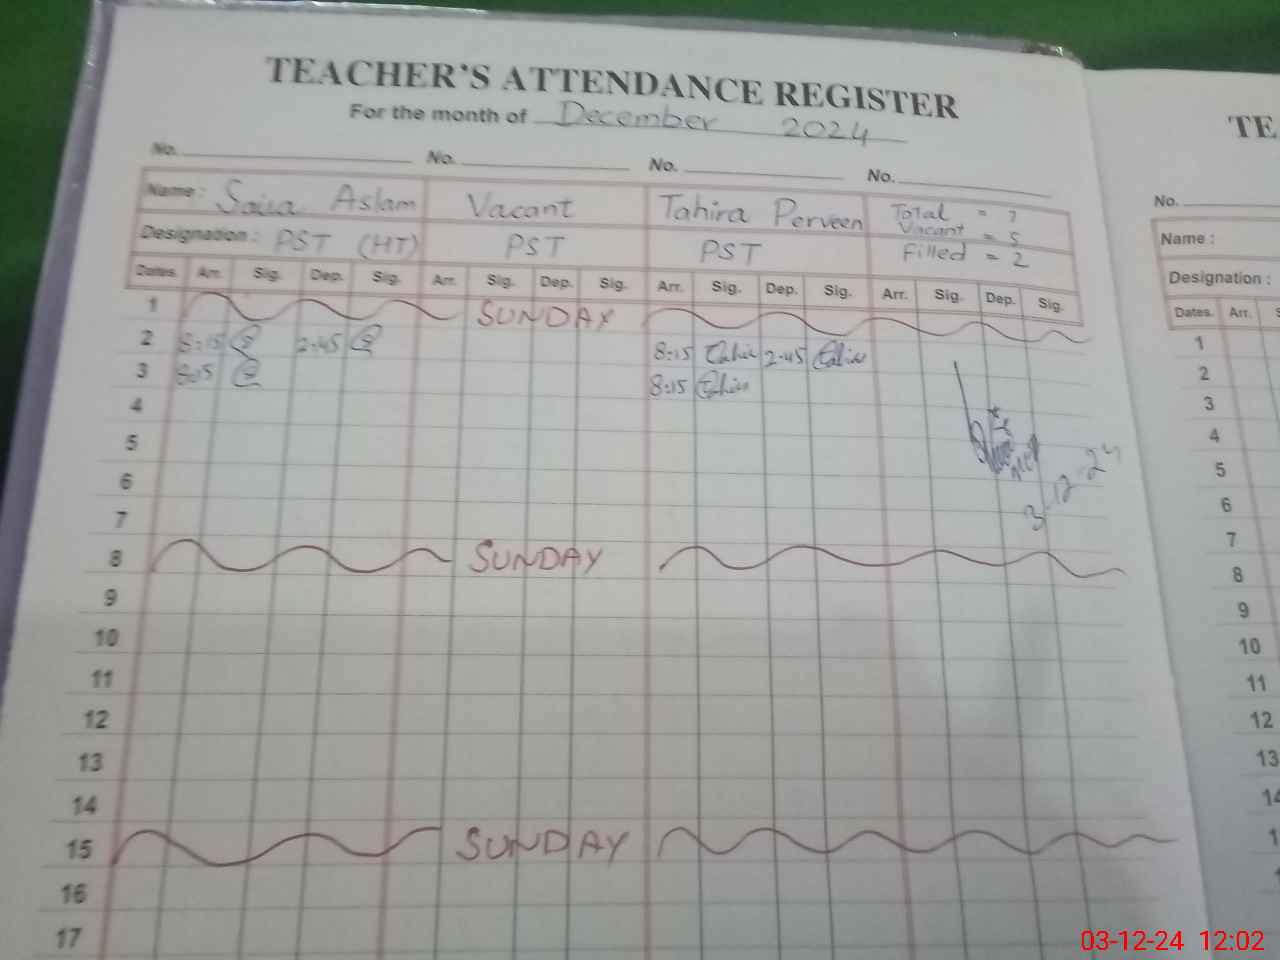 TEACHER'S ATTENDANCE REGISTER
For the month of December 2024
No. No. No. No.
Name : Saira Aslam Vacant Tahira Perveen Total = 7
Vacant = 5
Designation : PST (HT) PST PST Filled = 2
Dates. Arr. Sig. Dep. Sig. Arr. Sig. Dep. Sig. Arr. Sig. Dep. Sig. Arr. Sig. Dep. Sig.
1 SUNDAY
2 8:15 2:45 8:15 2:45
3 8:15 8:15
4
5
6
7
3-12-24
8 SUNDAY
9
10
11
12
13
14
15 SUNDAY
16
17
TE
No.
Name :
Designation :
Dates. Arr. S
1
2
3
4
5
6
7
8
9
10
11
12
13
14
03-12-24 12:02